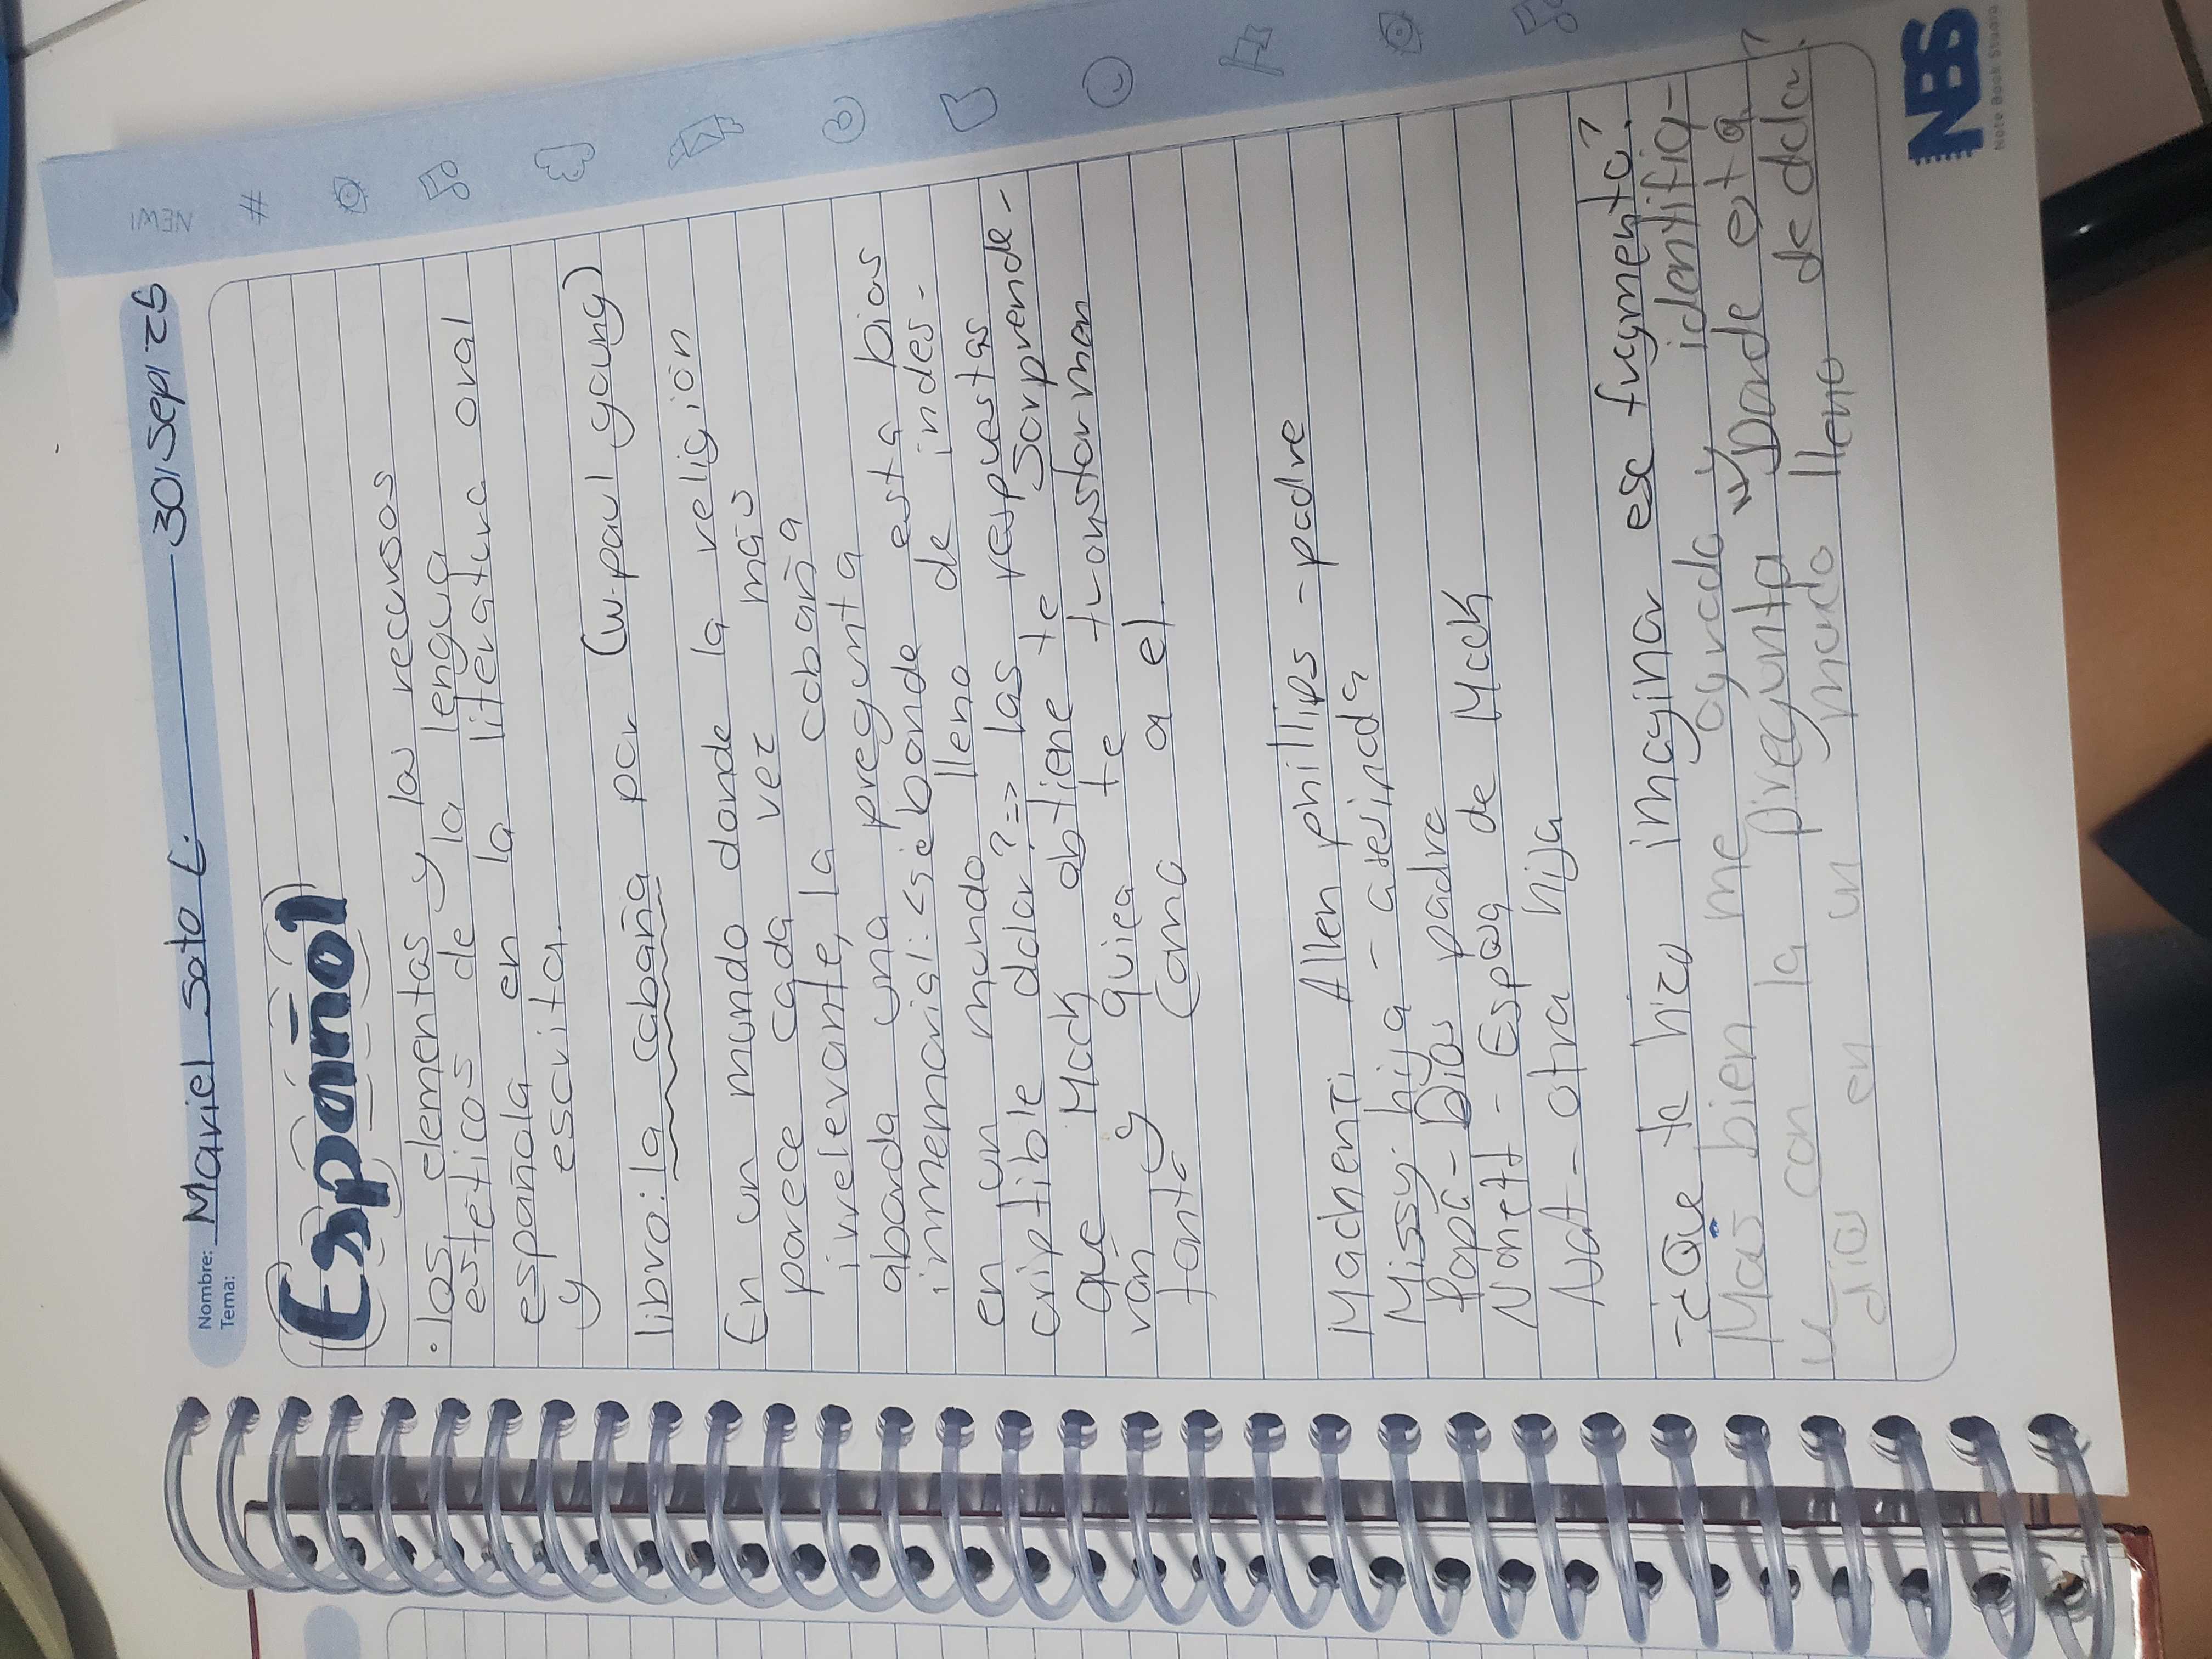 Nombre: Mariel Soto L. 30/Sept 25
Tema:
NEW!
#
Español
• los elementos y los recursos
estéticos de la lengua
española en la literatura oral
y escrita.
libro: la cabaña por (w.paul young)
En un mundo donde la religión
parece cada vez más
irrelevante, la cabaña
aborda una pregunta
inmemorial: <si é bonde está Dios
en un mundo lleno de indes-
criptible dolor?=> las respuestas
que Mack obtiene te sorprende-
rán y quiea te transforman
tanto como a el.
Machenri Allen phillips - padre
Missy: hija - asesinada
Papá - Dios padre
Nanett - Esposa de Mack
Nat - otra hija
- ¿Que te hizo imaginar ese fragmento?
Mas bien me ayudo y identifiq-
ue con la pregunta "Donde esta
dios en un mundo lleno de dolor.
NBS
Note Book Studio